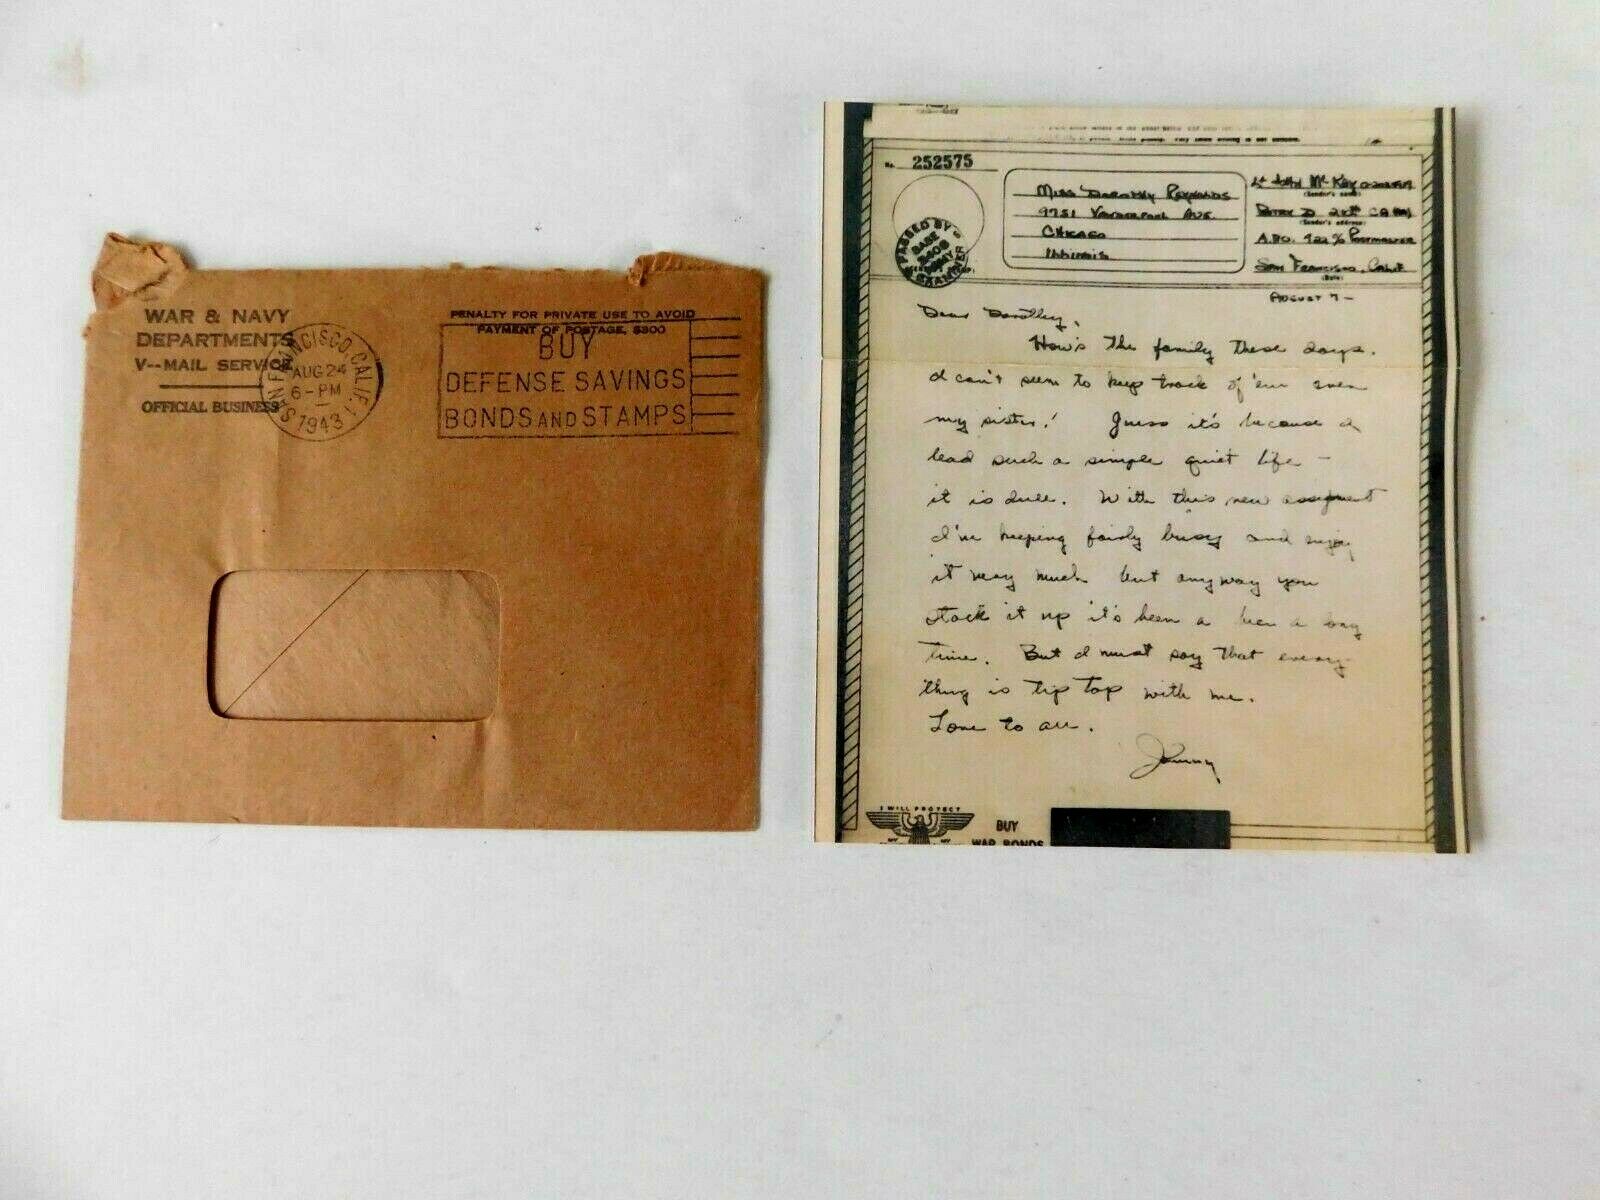 WAR & NAVY
DEPARTMENTS
V--MAIL SERVICE
OFFICIAL BUSINESS
SAN FRANCISCO, CALIF. 1
AUG 24
6-PM
1943
PENALTY FOR PRIVATE USE TO AVOID
PAYMENT OF POSTAGE, $300
BUY
DEFENSE SAVINGS
BONDS AND STAMPS
No. 252575
PASSED BY
BASE
ARMY
EXAMINER
Miss Dorothy Reynolds
9751 Vanderpoel Ave
Chicago
Illinois
Lt John McKay
(Sender's name)
Btry D 2 CA
(Sender's address)
A.P.O. 922 % Postmaster
San Francisco, Calif
(Date)
August 7 -
Dear Dorothy,
How's the family these days.
I can't seem to keep track of 'em even
my sister! Guess it's because I
lead such a simple quiet life -
it is dull. With this new assignment
I'm keeping fairly busy and enjoy
it very much but anyway you
stack it up it's been a been a long
time. But I must say that every-
thing is tip top with me.
Love to all.
Johnny
I WILL PROTECT
MY MY
BUY
WAR BONDS